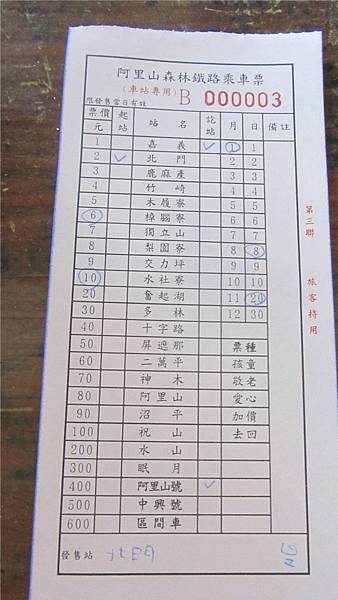 阿里山森林鐵路乘車票
(車站專用) B 000003
限發售當日有效
票價 起 站 名 訖 月 日 備註
元 站 站
1 嘉義 ✓ 1 1
2 ✓ 北門 2 2
3 鹿麻產 3 3
4 竹崎 4 4
5 木履寮 5 5
6 樟腦寮 6 6
7 獨立山 7 7
8 梨園寮 8 8
9 交力坪 9 9
10 水社寮 10 10
20 奮起湖 11 20
30 多林 12 30
40 十字路
50 屏遮那 票種
60 二萬平 孩童
70 神木 敬老
80 阿里山 愛心
90 沼平 加價
100 祝山 去回
200 水山
300 眠月
400 阿里山號 ✓
500 中興號
600 區間車
發售站
第三聯 旅客持用